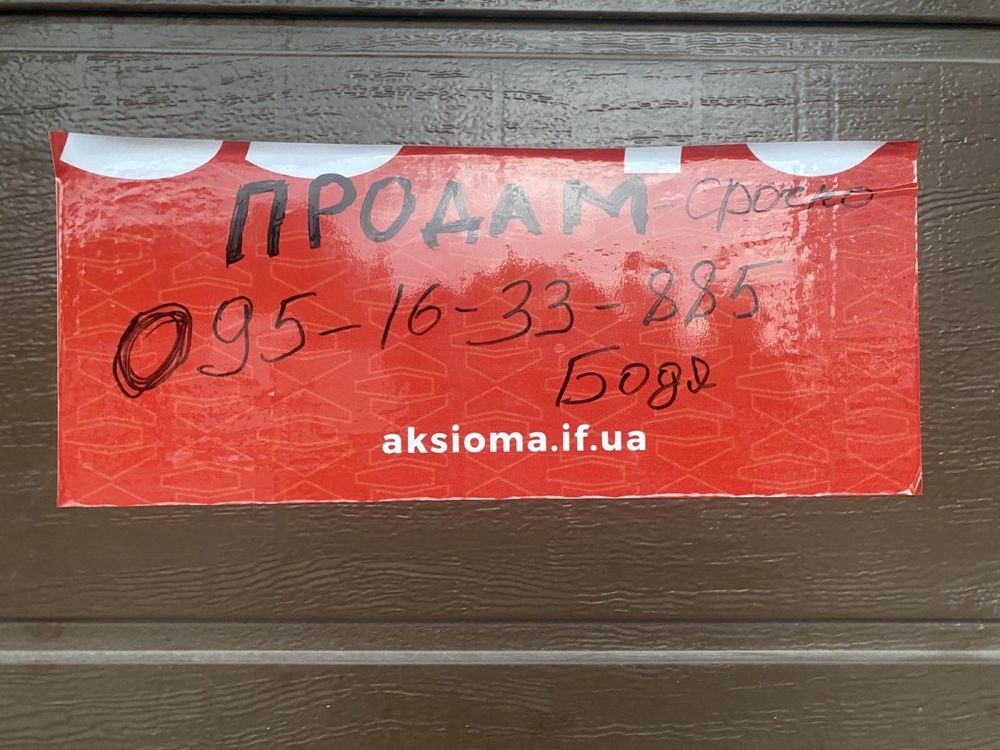 ПРОДАМ - срочно
095-16-33-885
Бодя
aksioma.if.ua